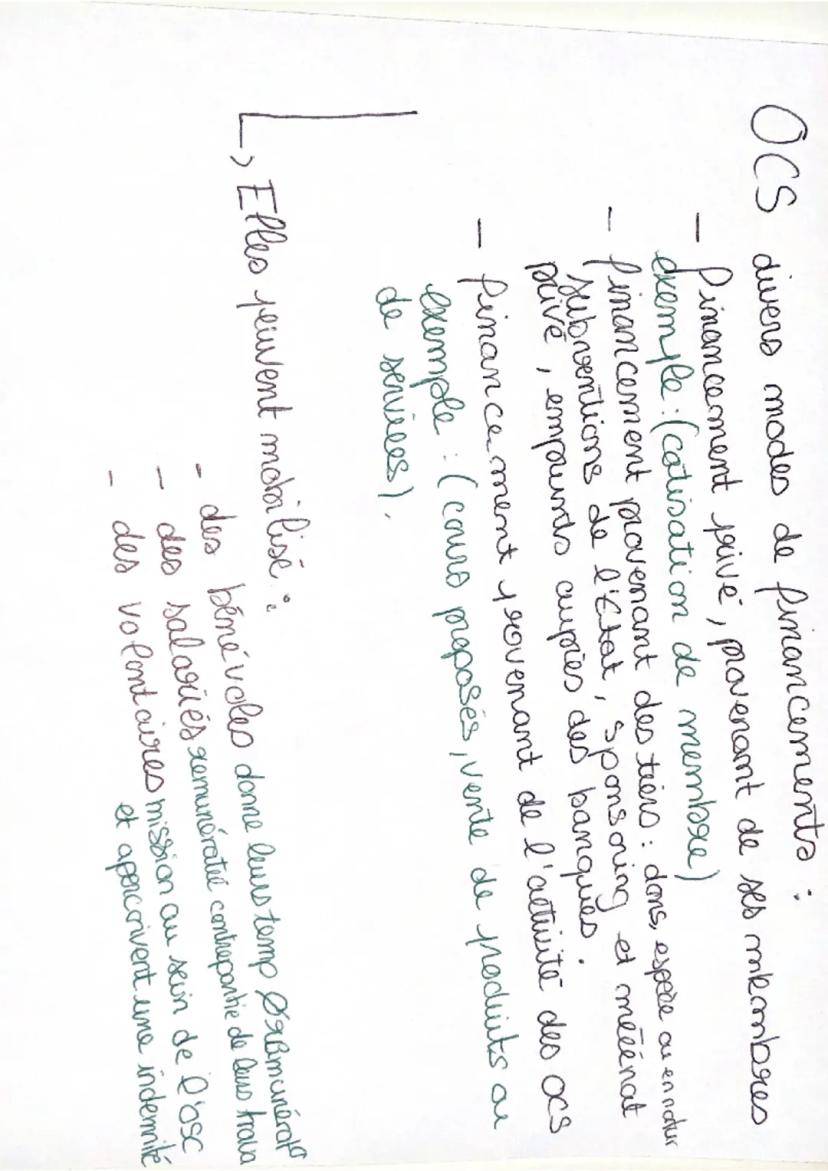 OCS divers modes de financements :
- financement privé, provenant de ses mkembres
exemple : (cotisation de membre)
- financement provenant des tiers : dons, espèce ou en natur
subventions de l'Etat, sponsoring et mécénat
privé, emprunts auprès des banques.
- financement provenant de l'activité des OCS
exemple : (cours proposés, vente de produits ou
de services).
↳ Elles peuvent mobilisé :
- des bénévoles donne leurs temp Ø rémunérat°
- des salariés remunératié contrepartie de leurs trava
- des volontaires mission au sein de l'OSC
et apercoivent une indemité